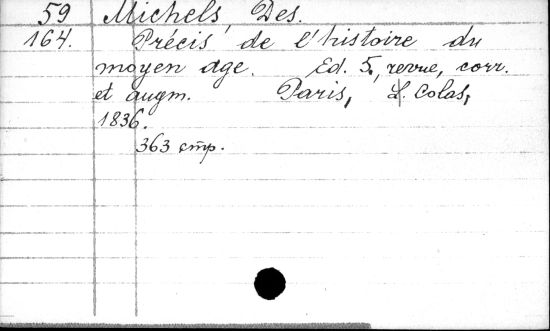 59 Michels, Des.
164. Précis de l'histoire du
moyen age. Ed. 5, revue, corr.
et augm. Paris, L. Colas,
1836.
363 cmp.